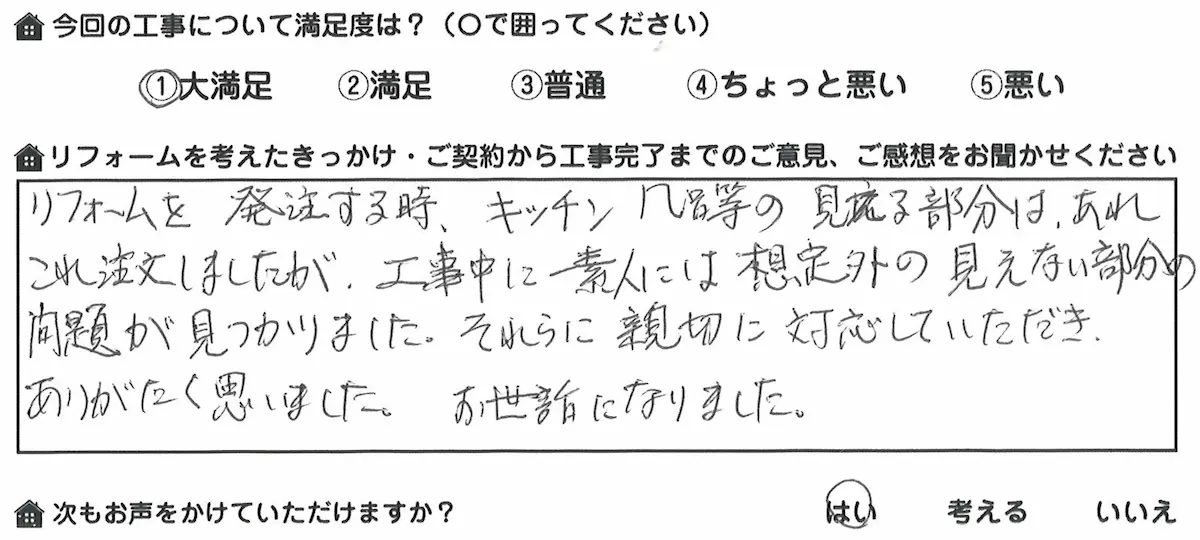 今回の工事について満足度は？（〇で囲ってください）
①大満足 ②満足 ③普通 ④ちょっと悪い ⑤悪い
リフォームを考えたきっかけ・ご契約から工事完了までのご意見、ご感想をお聞かせください
リフォームを発注する時、キッチン 等の見える部分は、あれ
これ注文しましたが、工事中に素人には想定外の見えない部分の
問題が見つかりました。それらに親切に対応していただき、
ありがたく思いました。 お世話になりました。
次もお声をかけていただけますか？ はい 考える いいえ